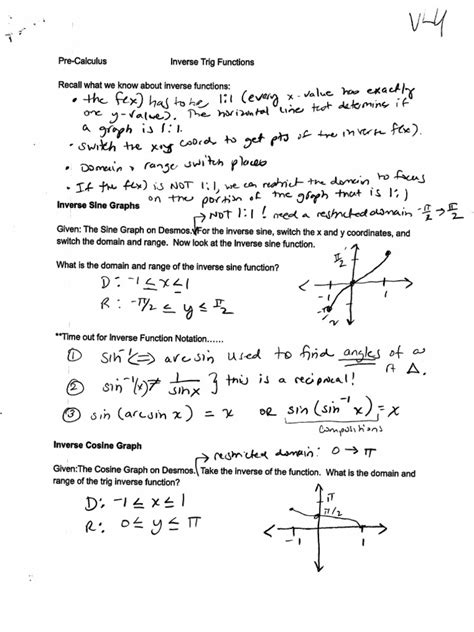 V-4
Pre-Calculus Inverse Trig Functions
Recall what we know about inverse functions:
• the f(x) has to be 1:1 (every x-value has exactly
one y-value). The horizontal line test determins if
a graph is 1:1.
• switch the x+y coords to get pts of the inverse f(x).
• Domain + range switch places
• If the f(x) is NOT 1:1, we can restrict the domain to focus
on the portion of the graph that is 1:1
Inverse Sine Graphs
→ NOT 1:1! need a restricted domain -π/2 → π/2
Given: The Sine Graph on Desmos. For the inverse sine, switch the x and y coordinates, and
switch the domain and range. Now look at the inverse sine function.
What is the domain and range of the inverse sine function?
D: -1 ≤ x ≤ 1
R: -π/2 ≤ y ≤ π/2
π/2
-1 1
-π/2
**Time out for Inverse Function Notation......
① sin⁻¹ ⇔ arcsin used to find angles of a
rt Δ.
② sin⁻¹(x) ≠ 1/sin x } this is a reciprical!
③ sin (arcsin x) = x OR sin (sin⁻¹ x) = x
Compositions
Inverse Cosine Graph
→ restricted domain: 0 → π
Given:The Cosine Graph on Desmos. Take the inverse of the function. What is the domain and
range of the trig inverse function?
D: -1 ≤ x ≤ 1
R: 0 ≤ y ≤ π
π
π/2
-1 1